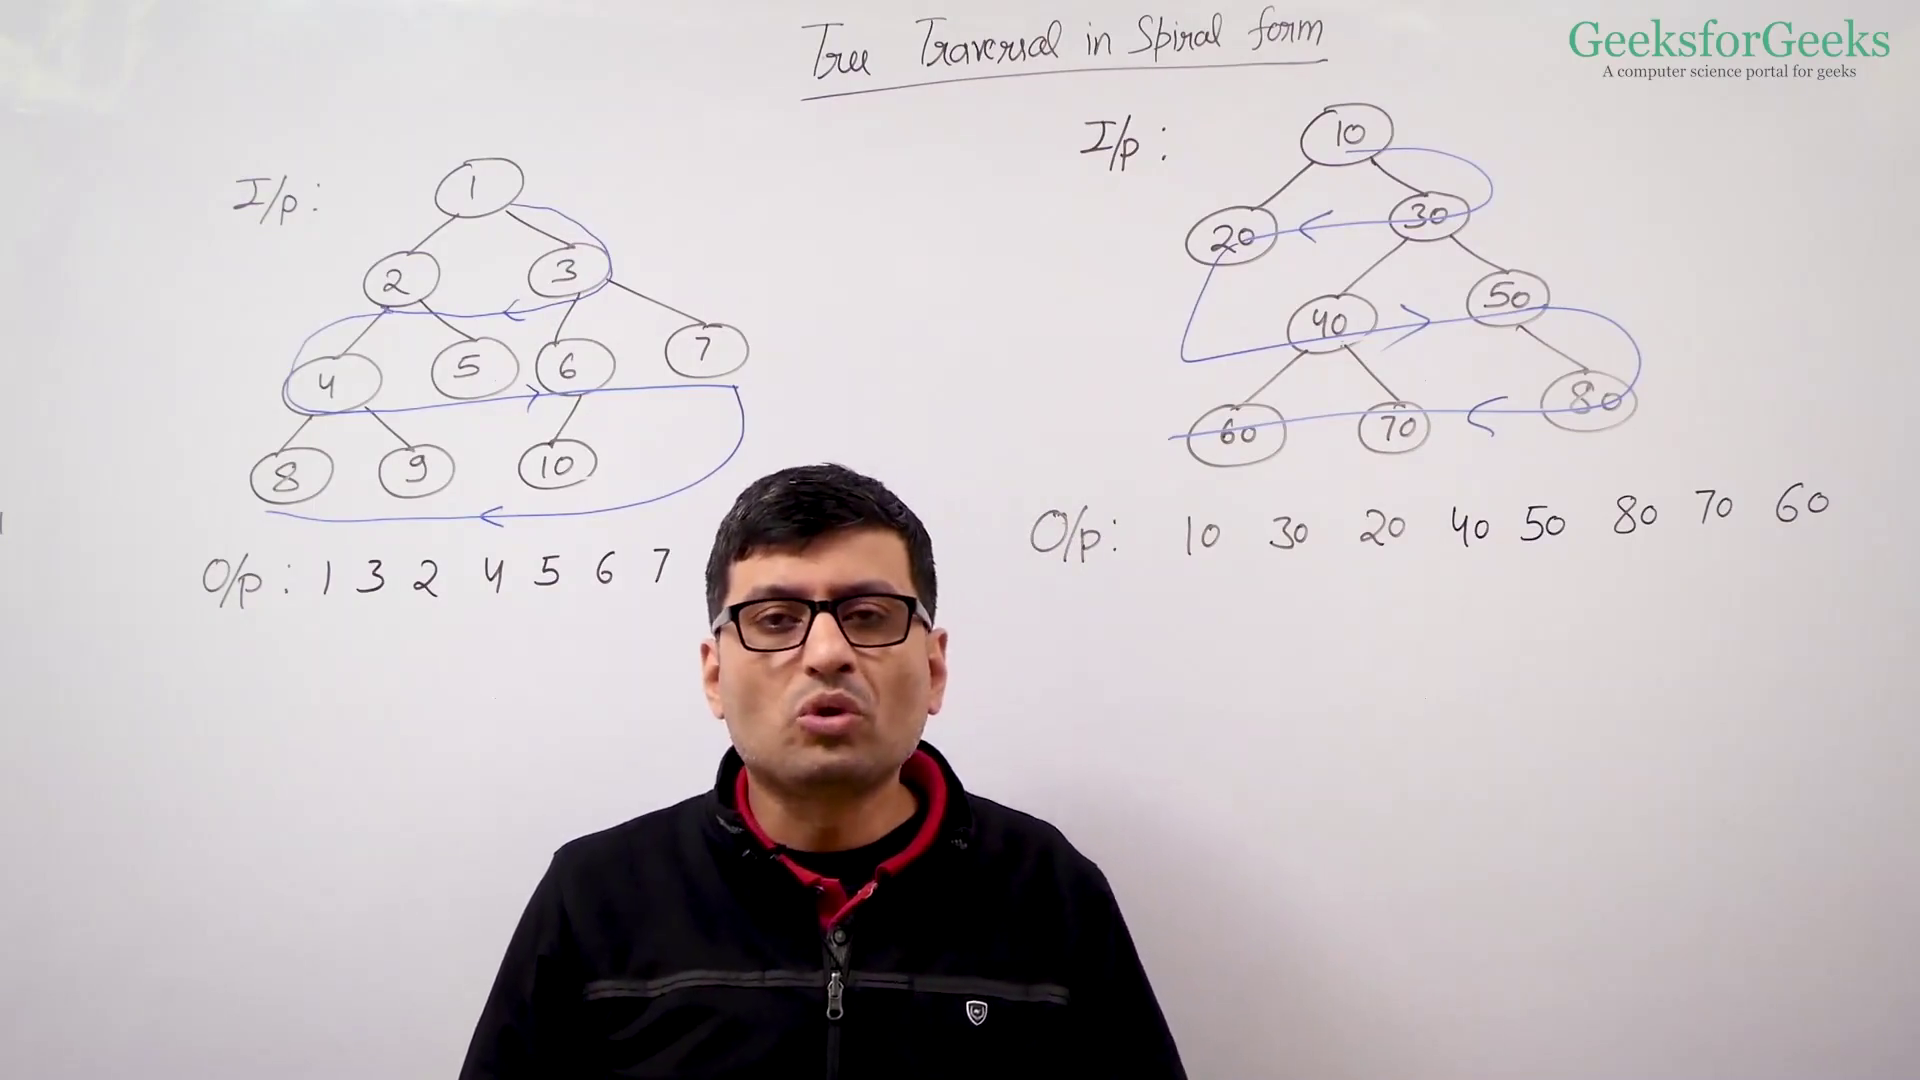 Tree Traversal in Spiral form
GeeksforGeeks
A computer science portal for geeks
I/p :
1
2 3
4 5 6 7
8 9 10
O/p : 1 3 2 4 5 6 7
I/p :
10
20 30
40 50
60 70 80
O/p : 10 30 20 40 50 80 70 60